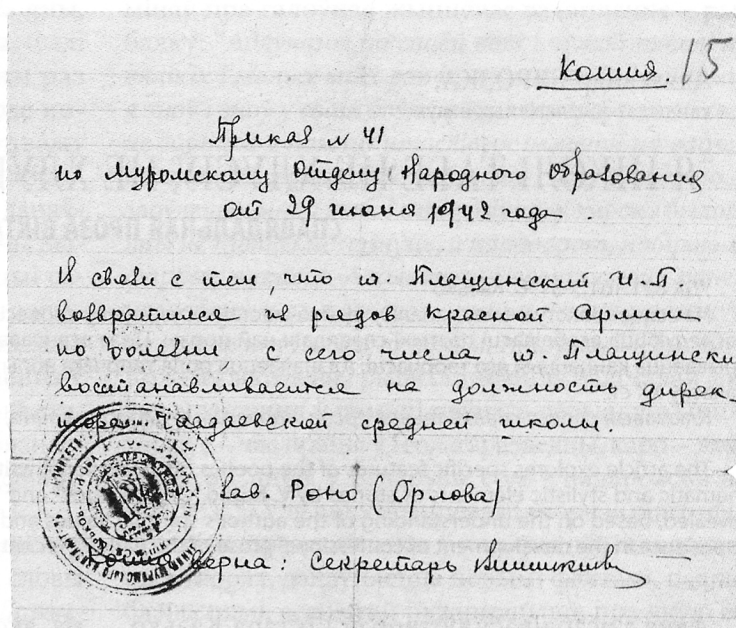 Копия. 15
Приказ № 41
по Муромскому Отделу Народного Образования
от 29 июня 1942 года.
В связи с тем, что т. Плащинский И.П
возвратился из рядов Красной Армии
по болезни с сего числа т. Плащинский
восстанавливается на должность дирек-
тора Чаадаевской средней школы.
Зав. Роно (Орлова)
Копия верна: Секретарь